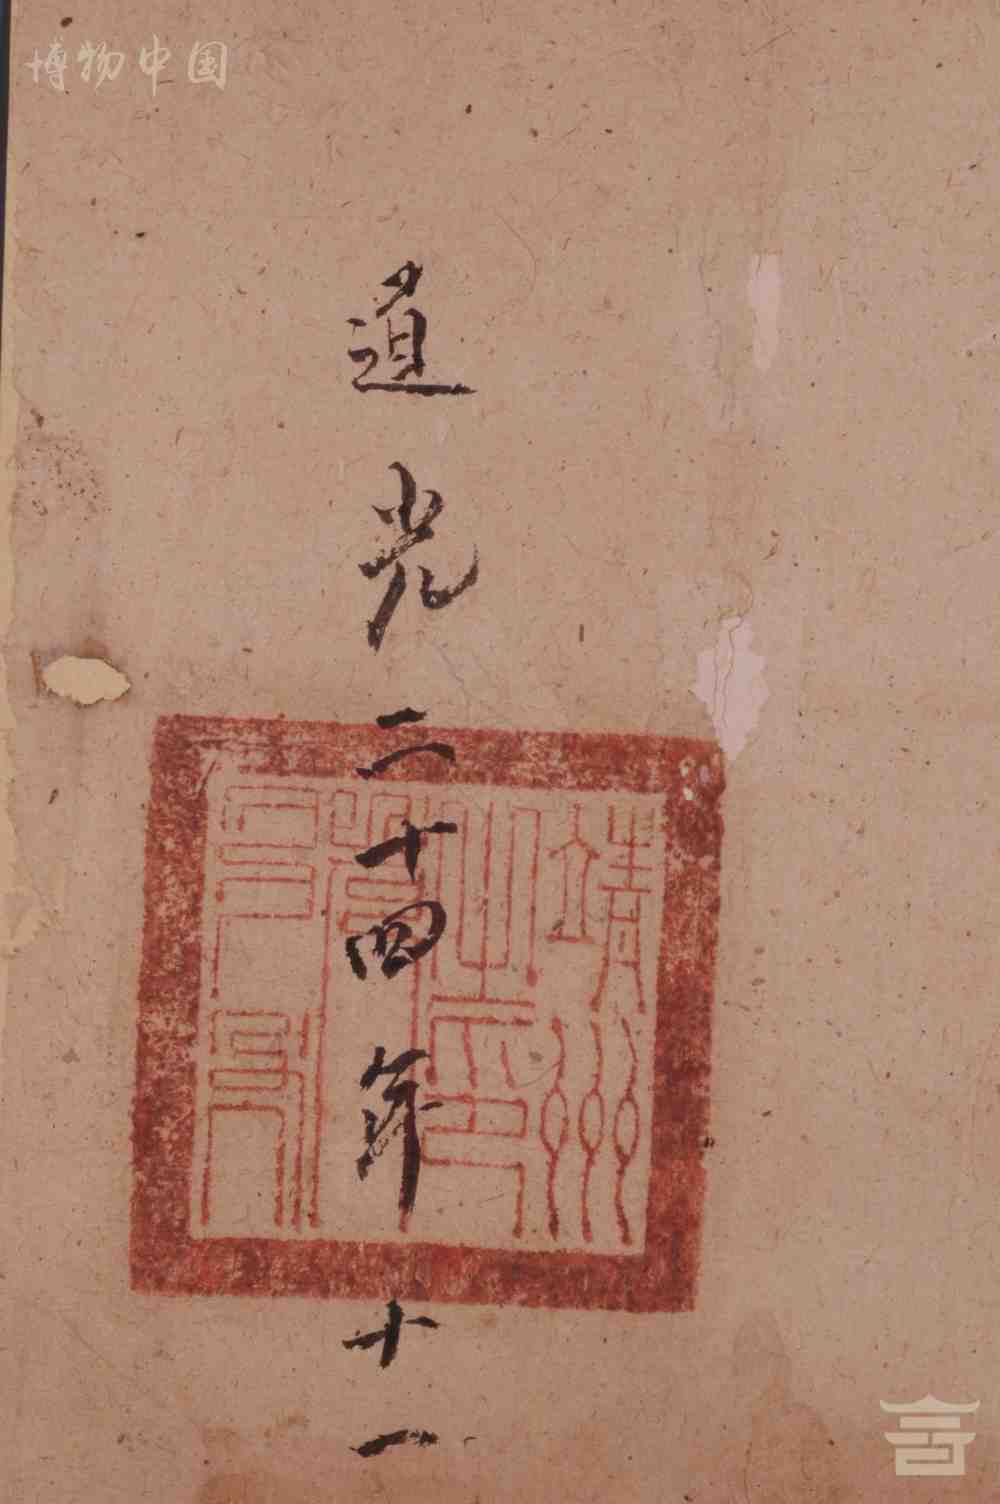 博物中国
道光二十四年十一
靖州
之印